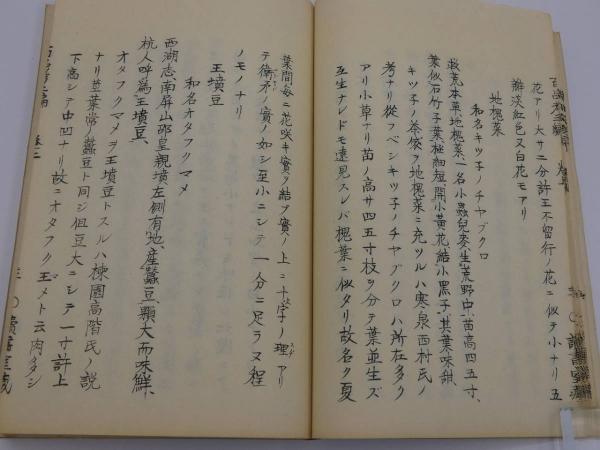 花アリ大サ二分許王不留行ノ花ニ似テ小ナリ五
瓣淡紅色又白花モアリ
地槐菜
和名キツ子ノチヤブクロ
救荒本草地槐菜一名小蟲兒麥生荒野中苗高四五寸、
葉似石竹子葉極細短開小黄花結小黒子其葉味甜
キツ子ノ茶袋ヲ地槐菜ニ充ツルハ寒泉西村氏ノ
考ナリ從フベシキツ子ノチヤブクロハ所在多ク
アリ小草ナリ苗ノ高サ四五寸枝ヲ分テ葉並生ズ
互生ナレドモ遠見スレバ槐葉ニ似タリ故名ク夏
葉間每ニ花咲キ實ヲ結ブ實ノ上ニ十字ノ理アリ
テ衞矛ノ實ノ如シ至小ニシテ一分ニ足ラヌ程
ノモノナリ
王墳豆
和名オタフクマメ
西湖志、南屏山邵皇親墳左側有地、産蠶豆、顆大而味鮮、
杭人呼爲王墳豆、
オタフクマメヲ王墳豆トスルハ棟園高階氏ノ説
ナリ莖葉常ノ蠶豆ト同ジ但豆大ニシテ一寸許上
下高シテ中凹ナリ故ニオタフクマメト云肉タシ